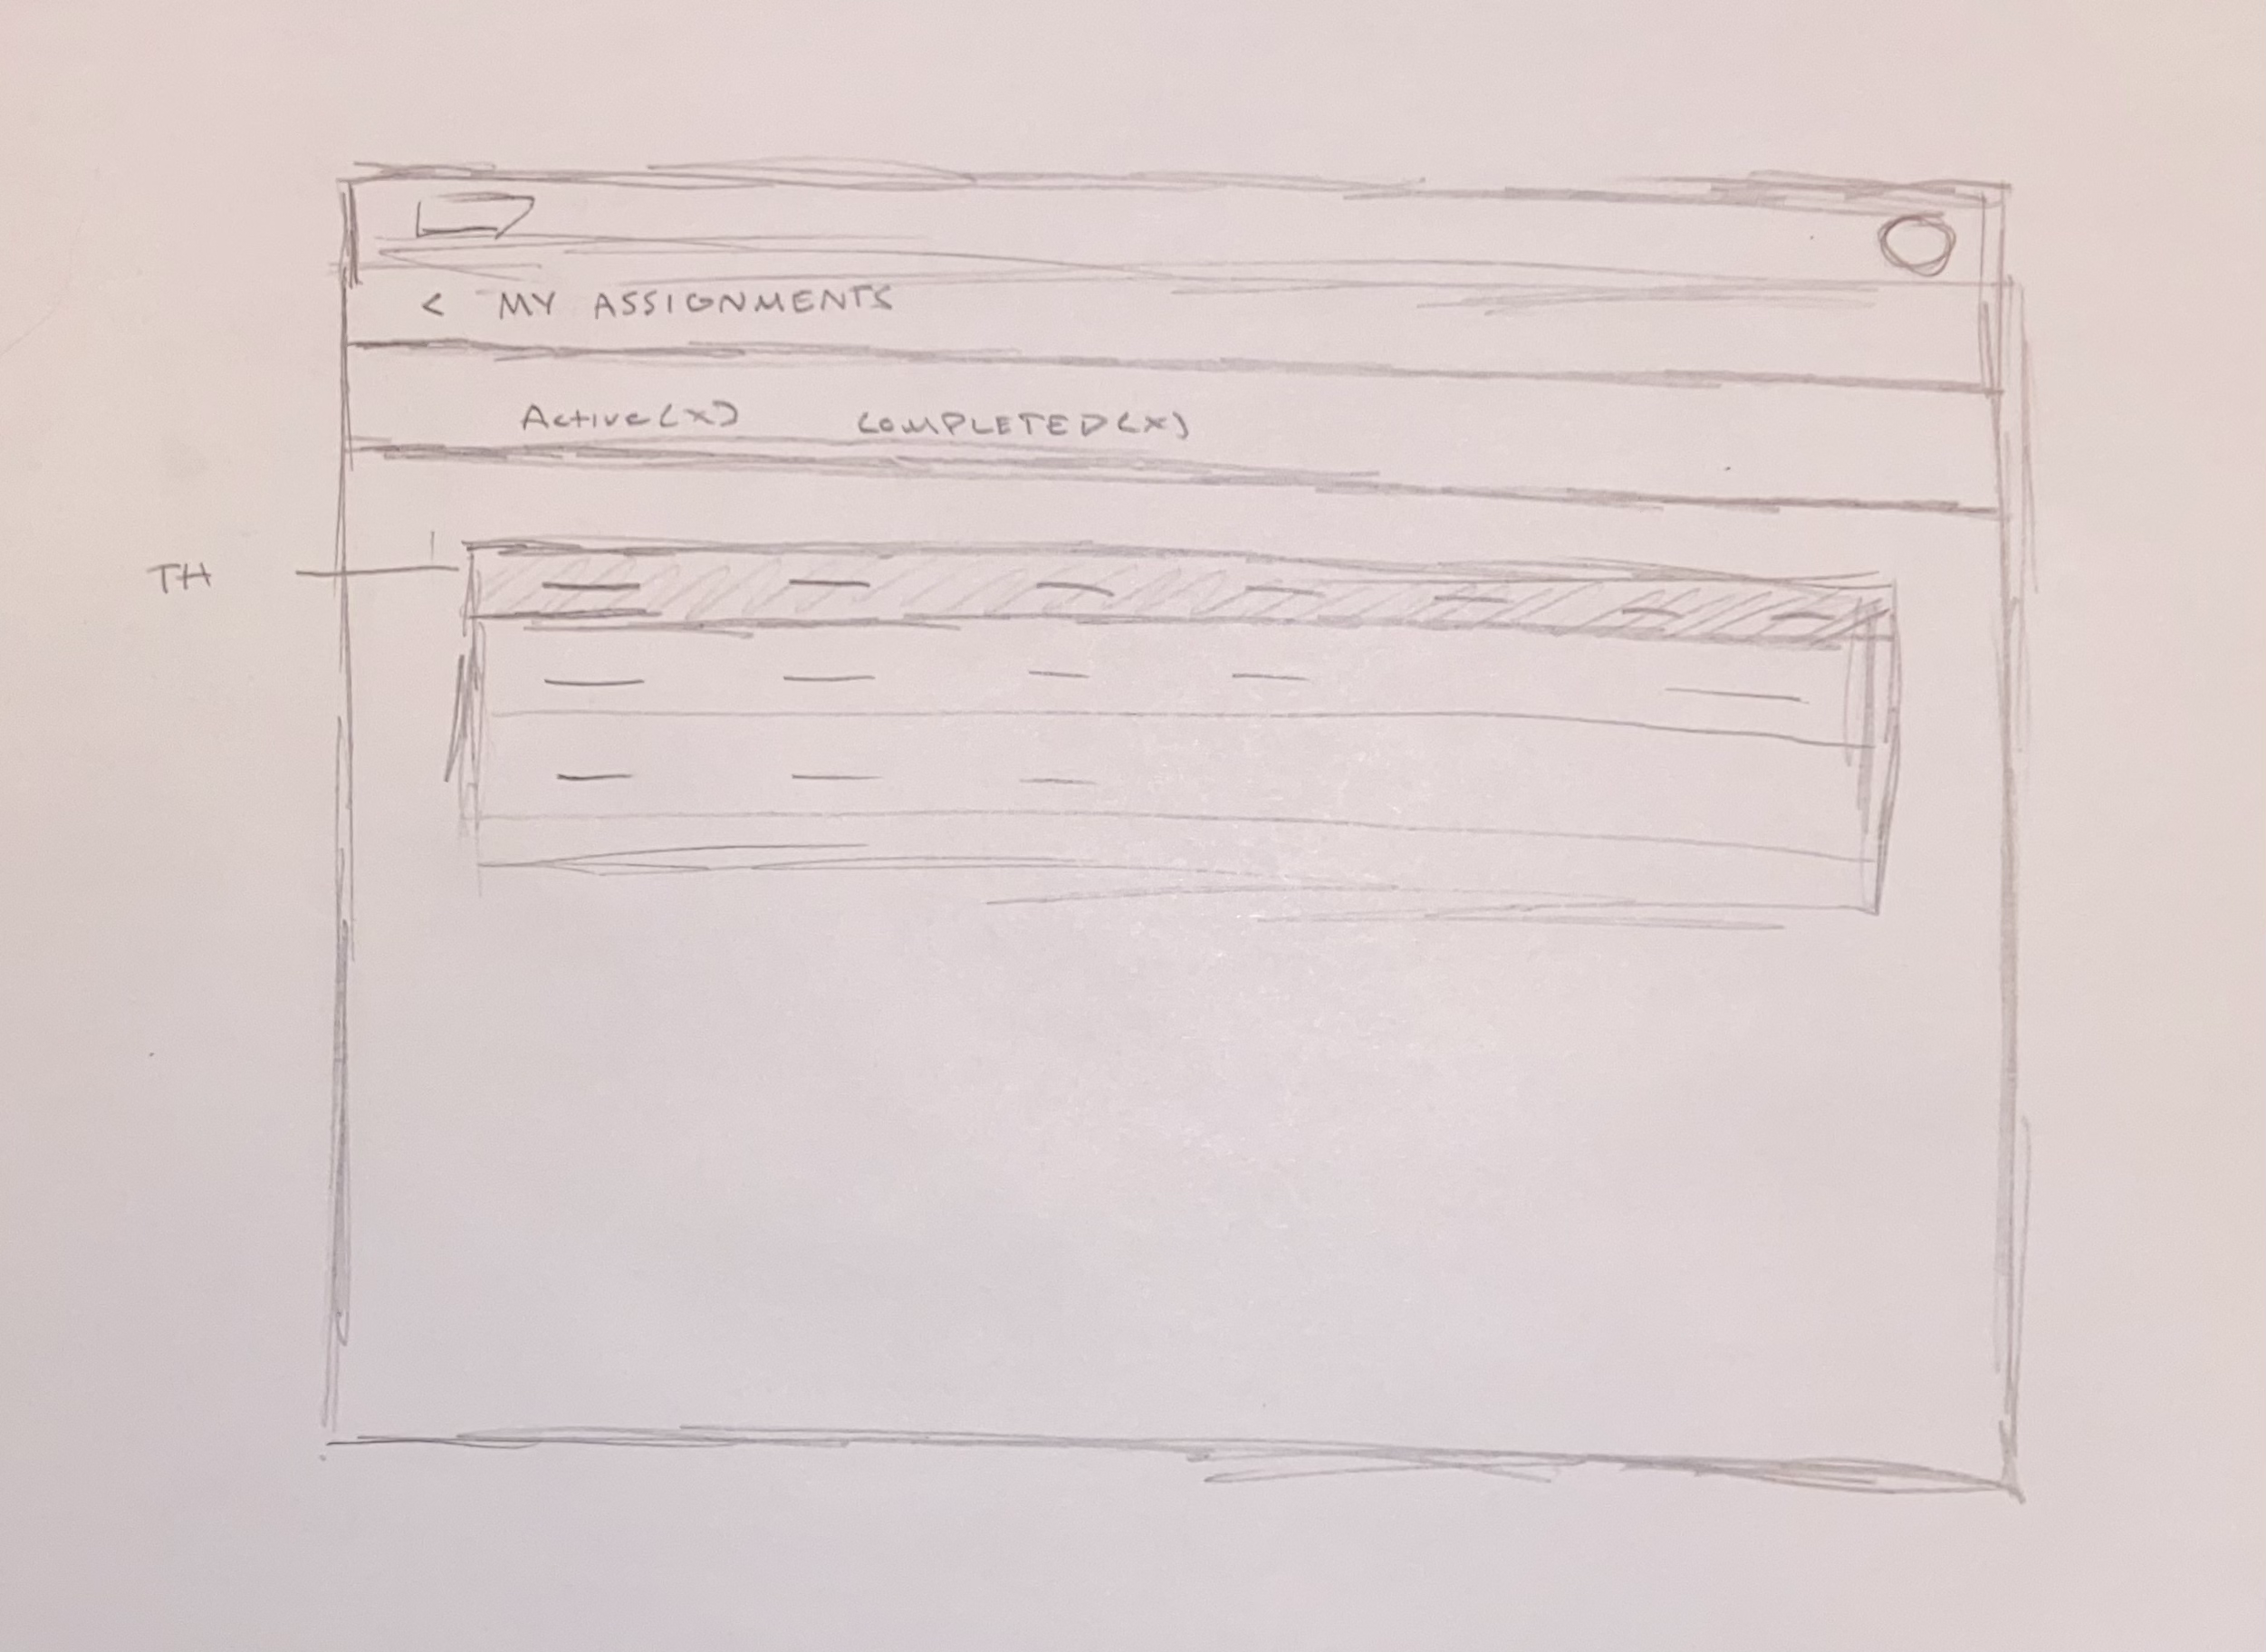 < MY ASSIGNMENTS
Active(x) COMPLETED(x)
TH